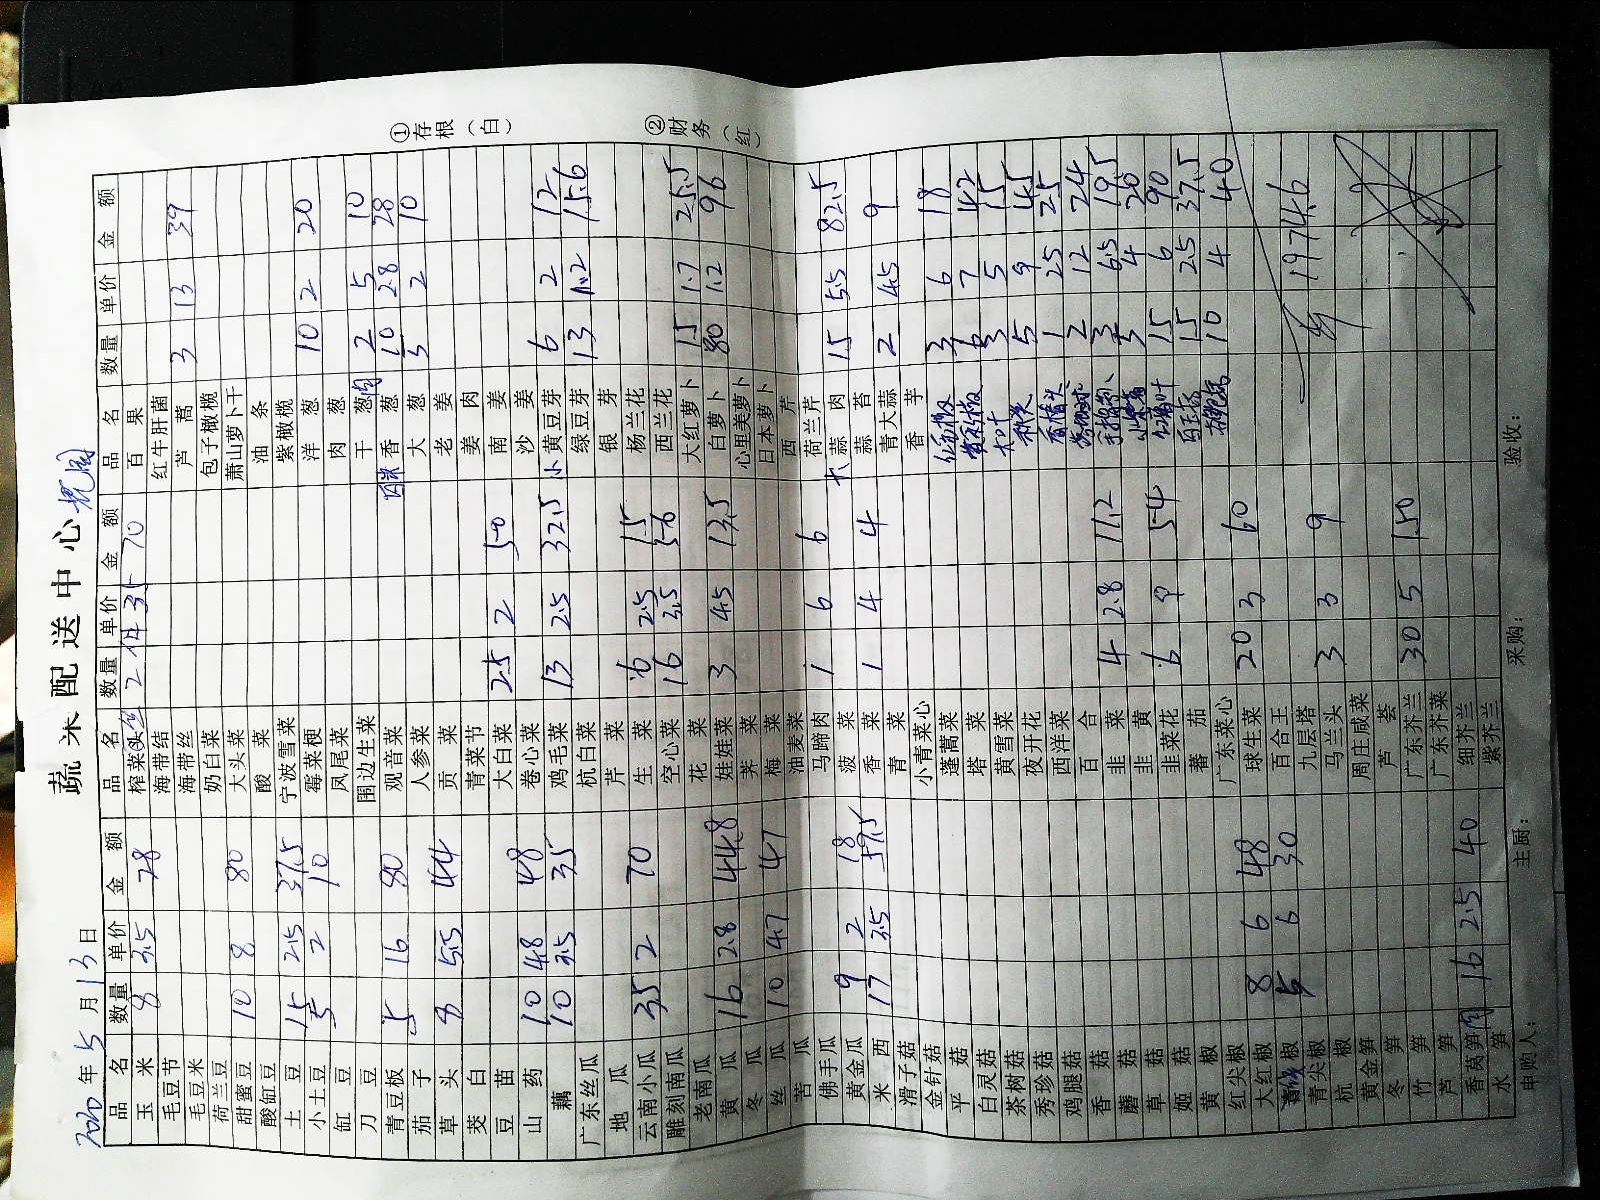 蔬菜配送中心
2020年5月13日
品名 数量 单价 金额 品名 数量 单价 金额 品名 数量 单价 金额
玉米 8 3.5 28 榨菜头丝 2件 35 70 百果
毛豆节 海带结 红牛肝菌
毛豆米 海带丝 芦蒿 3 13 39
荷兰豆 奶白菜 包子橄榄
甜蜜豆 10 8 80 大头菜 萧山萝卜干
酸缸豆 酸菜 油条
土豆 15 2.5 37.5 宁波雪菜 紫橄榄
小土豆 5 2 10 霉菜梗 洋葱 10 2 20
缸豆 凤尾菜 肉葱
刀豆 围边生菜 干葱肉 2 5 10
青豆板 5 16 80 观音菜 香葱 10 2.8 28
茄子 人参菜 大葱 5 2 10
草头 8 5.5 44 贡菜 老姜
茭白 青菜节 姜肉
豆苗 大白菜 25 2 50 南姜
山药 10 4.8 48 卷心菜 沙姜
藕 10 3.5 35 鸡毛菜 13 2.5 32.5 小黄豆芽 6 2 12
广东丝瓜 杭白菜 绿豆芽 13 1.2 15.6
地瓜 芹菜 银芽
云南小瓜 35 2 70 生菜 6 2.5 15 杨兰花
雕刻南瓜 空心菜 16 3.5 56 西兰花
老南瓜 花菜 大红萝卜 15 1.7 25.5
黄瓜 16 2.8 44.8 娃娃菜 3 4.5 13.5 白萝卜 80 1.2 96
冬瓜 荠菜 心里美萝卜
丝瓜 10 4.7 47 梅菜 日本萝卜
苦瓜 油麦菜 西芹
佛手瓜 马蹄肉 1 6 6 荷兰芹
黄金瓜 9 2 18 菠菜 大蒜肉 15 5.5 82.5
米西 17 3.5 59.5 香菜 1 4 4 蒜苔
滑子菇 青菜 青大蒜 2 4.5 9
金针菇 小青菜心 香芋
平菇 蓬蒿菜 3 6 18
白灵菇 塔菜 6 7 42
茶树菇 黄雪菜 3 5 15
秀珍菇 夜开花 5 9 45
鸡腿菇 西洋菜 1 25 25
香菇 百合 2 12 24
蘑菇 韭菜 4 2.8 11.2 3 6.5 19.5
草菇 韭黄 5 4 20
姬菇 韭菜花 6 9 54 15 6 90
黄椒 番茄 15 2.5 37.5
红尖椒 广东菜心 10 4 40
大红椒 8 6 48 球生菜 20 3 60
椒 5 6 30 百合王
青尖椒 九层塔 1974.6
杭椒 马兰头 3 3 9
黄金笋 周庄咸菜
冬笋 芦荟
竹笋 广东芥兰 30 5 150
芦笋 广东芥菜
香莴笋肉 16 2.5 40 细芥兰
水笋 紫芥兰
申购人： 主厨： 采购： 验收：
①存根（白）
②财务（红）